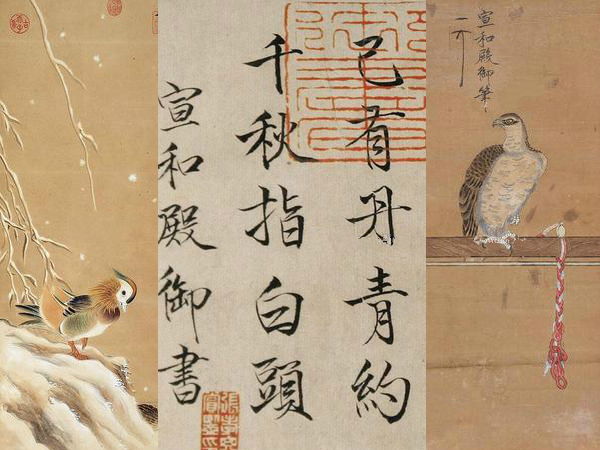 已有丹青約
千秋指白頭
宣和殿御書
宣和殿御筆